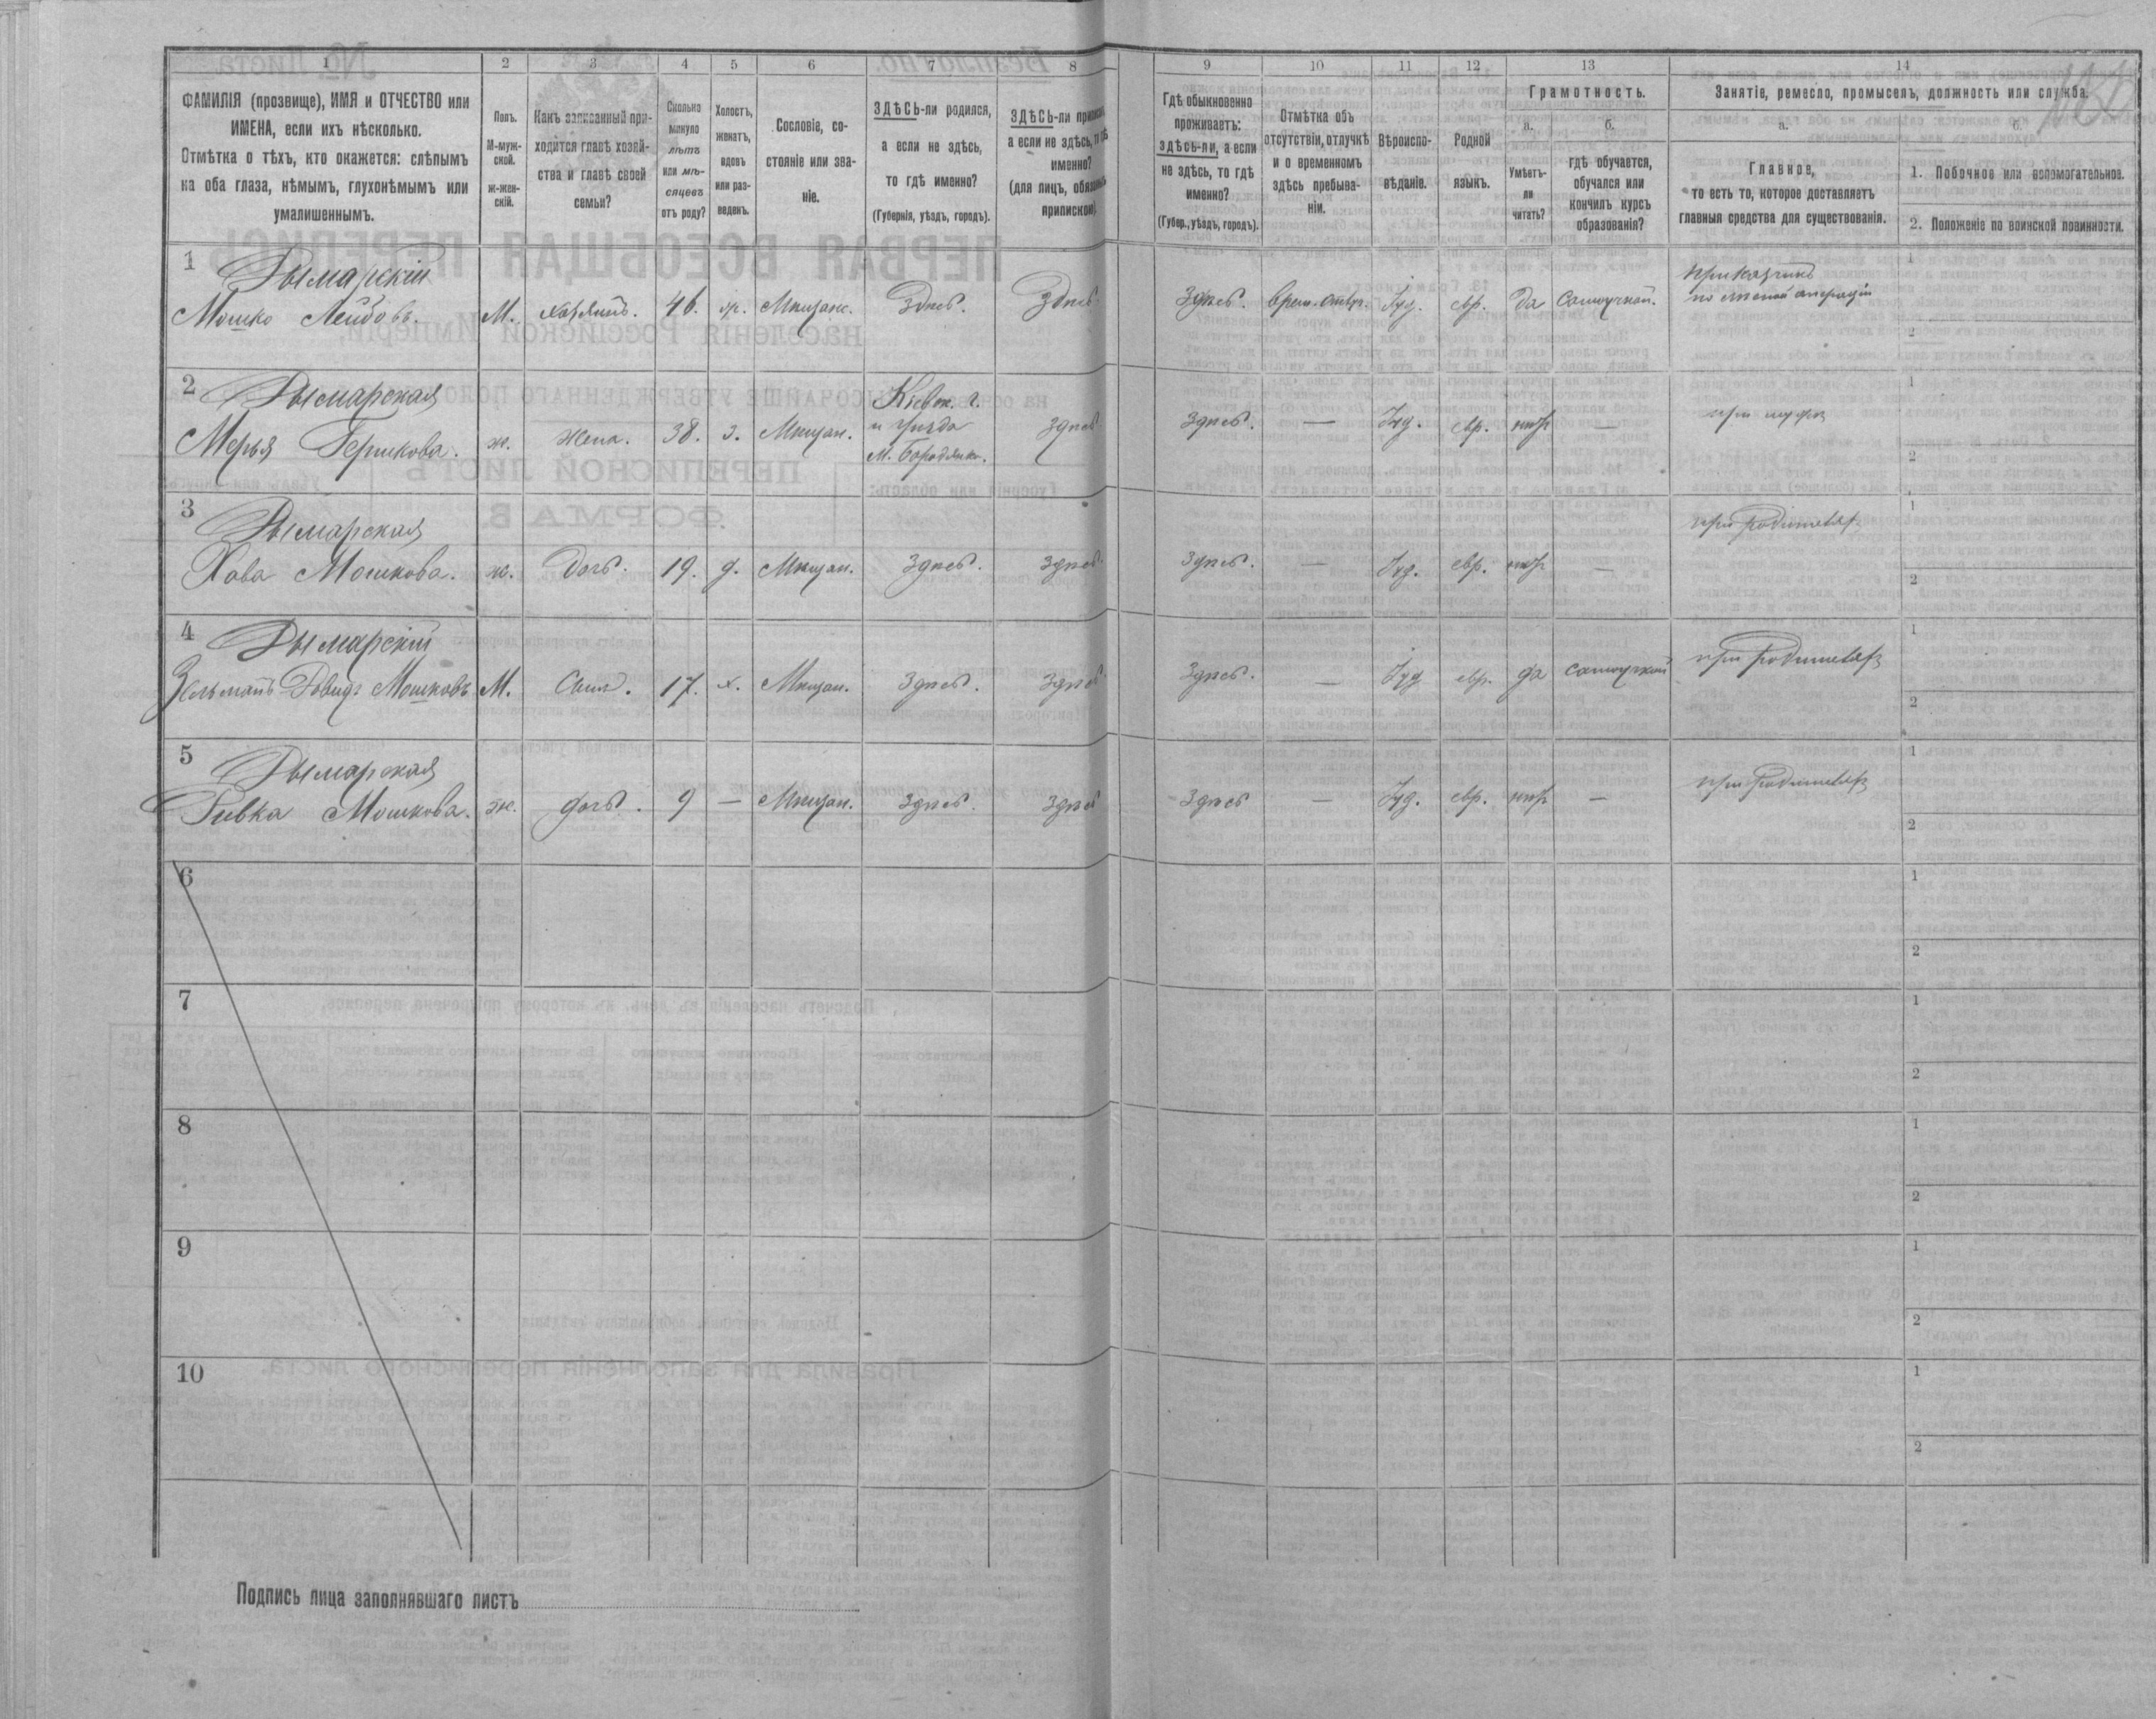 1 2 3 4 5 6 7 8 9 10 11 12 13 14
ФАМИЛІЯ (прозвище), ИМЯ и ОТЧЕСТВО или
ИМЕНА, если ихъ нѣсколько.
Отмѣтка о тѣхъ, кто окажется: слѣпымъ
на оба глаза, нѣмымъ, глухонѣмымъ или
умалишеннымъ.
Полъ.
М-муж-
ской.
ж-жен-
скій.
Какъ записанный при-
ходится главѣ хозяй-
ства и главѣ своей
семьи?
Сколько
минуло
лѣтъ
или мѣ-
сяцевъ
отъ роду?
Холостъ,
женатъ,
вдовъ
или раз-
веденъ.
Сословіе, со-
стояніе или зва-
ніе.
ЗДѢСЬ-ли родился,
а если не здѣсь,
то гдѣ именно?
(Губернія, уѣздъ, городъ).
ЗДѢСЬ-ли
а если не здѣсь,
именно?
(для лицъ,
припиской)
Гдѣ обыкновенно
проживаетъ:
здѣсь-ли, а если
не здѣсь, то гдѣ
именно?
(Губер., уѣздъ, городъ).
Отмѣтка объ
отсутствіи, отлучкѣ
и о временномъ
здѣсь пребыва-
ніи.
Вѣроиспо-
вѣданіе.
Родной
языкъ.
Грамотность.
а.
Умѣетъ-
ли
читать?
б.
гдѣ обучается,
обучался или
кончилъ курсъ
образованія?
Занятіе, ремесло, промыселъ, должность или служба.
а.
Главное,
то есть то, которое доставляетъ
главныя средства для существованія.
б.
1. Побочное или вспомогательное.
2. Положеніе по воинской повинности.
1 Рымарскій
Мошко Лейбовъ. М. хозяинъ. 46. Мѣщан. Здѣсь. Здѣсь. Здѣсь. Іуд. евр. да самоучкой. приказчикъ
по
1
2
2 Рымарская
Мерья Гершкова. ж. Жена. 38. з. Мѣщан. Кіевск. г.
и уѣзда
м. Бородянка. здѣсь Здѣсь. — Іуд. евр. нѣтъ — при мужѣ
1
2
3 Рымарская
Хава Мошкова. ж. Дочь. 19. д. Мѣщан. Здѣсь. Здѣсь. Здѣсь. — Іуд. евр. нѣтъ — при родителяхъ
1
2
4 Рымарскій
Зельманъ Довидъ Мошковъ М. Сынъ. 17. х. Мѣщан. Здѣсь. Здѣсь Здѣсь. — Іуд евр. да самоучкой при родителяхъ
1
2
5 Рымарская
Ривка Мошкова. ж. дочь. 9 — Мѣщан. Здѣсь. Здѣсь Здѣсь — Іуд. евр. нѣтъ — при родителяхъ
1
2
6
1
2
7
1
2
8
1
2
9
1
2
10
1
2
Подпись лица заполнявшаго листъ